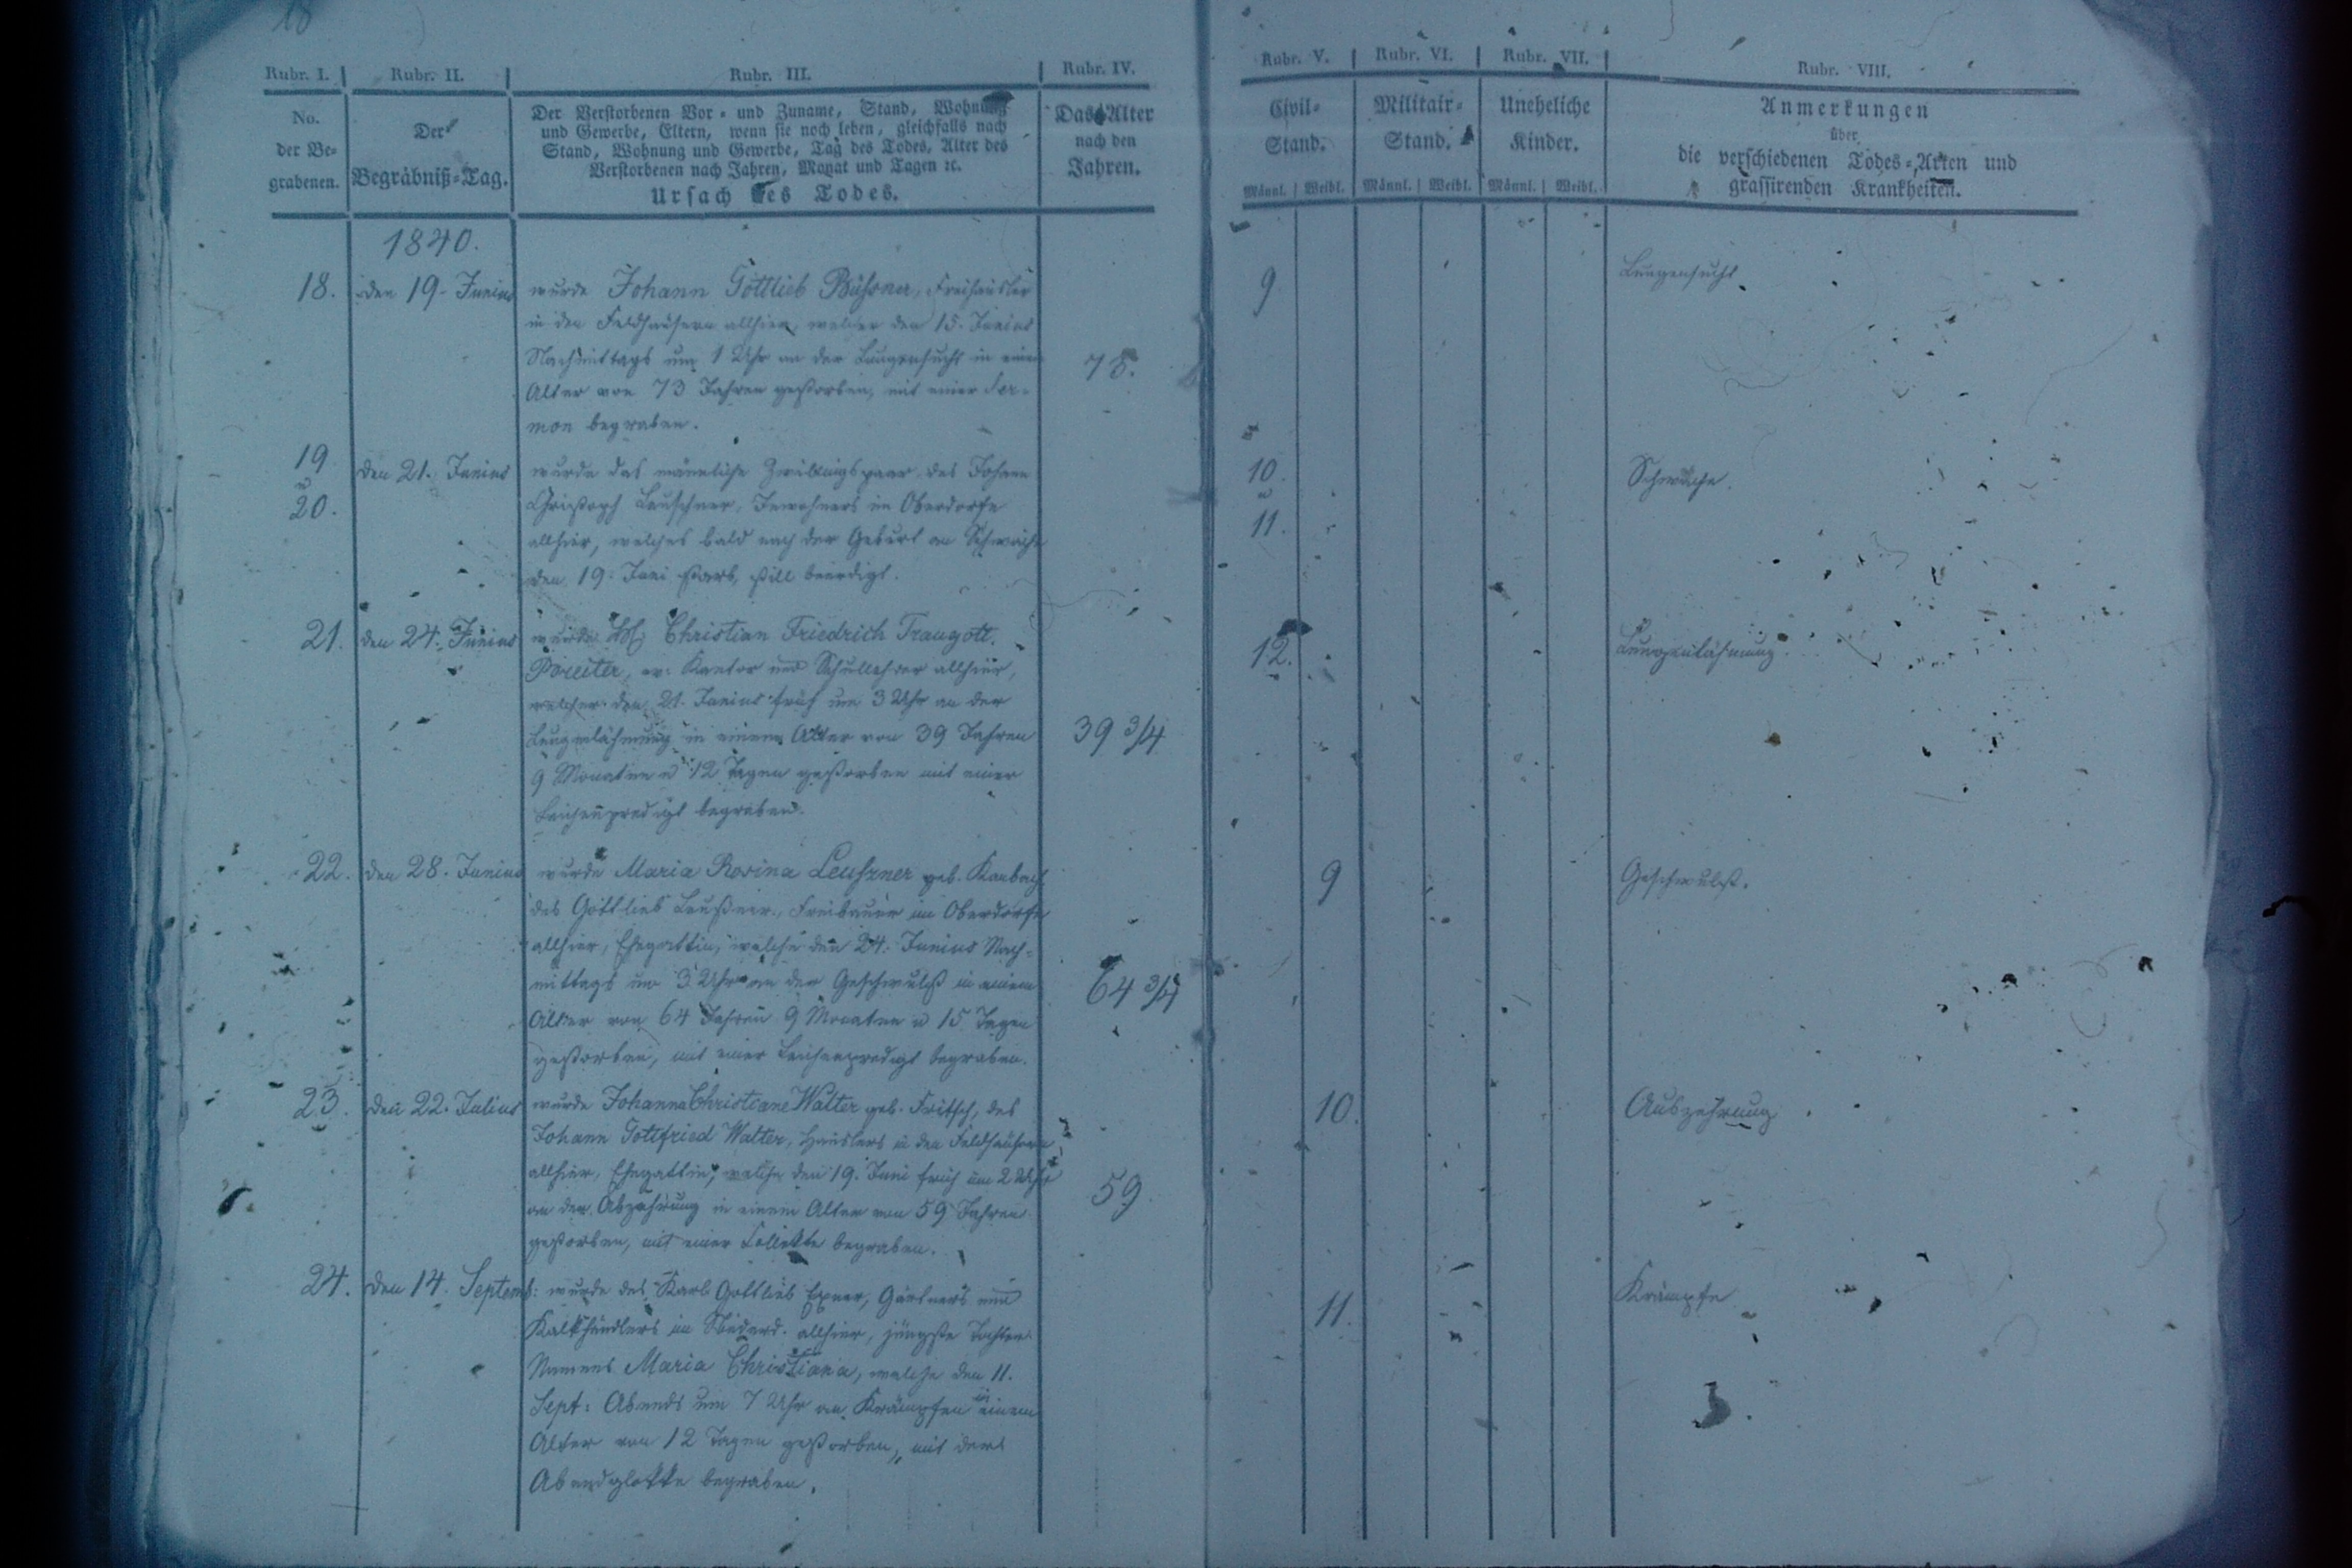 18
Rubr. I. Rubr. II. Rubr. III. Rubr. IV. Rubr. V. Rubr. VI. Rubr. VII. Rubr. VIII.
No.
der Be-
grabenen.
Der
Begräbniß-Tag.
Der Verstorbenen Vor- und Zuname, Stand, Wohnung
und Gewerbe, Eltern, wenn sie noch leben, gleichfalls nach
Stand, Wohnung und Gewerbe, Tag des Todes, Alter des
Verstorbenen nach Jahren, Monat und Tagen ꝛc.
Ursach des Todes.
Das Alter
nach den
Jahren.
Civil-
Stand.
Männl. Weibl.
Militair-
Stand.
Männl. Weibl.
Uneheliche
Kinder.
Männl. Weibl.
Anmerkungen
über
die verschiedenen Todes-Arten und
grassirenden Krankheiten.
1840.
18. den 19. Junius wurde Johann Gottlieb Büssner, Freihäusler 9 Lungensucht
in den Feldhäusern allhier, welcher den 15. Junius
Nachmittags um 1 Uhr an der Lungensucht in einem 78.
Alter von 73 Jahren gestorben, mit einer Ser-
mon begraben.
19 u 20. den 21. Junius wurde das männliche Zwillingspaar des Johann 10. u 11. Schwäche.
Christoph Leuschner, Inwohners im Oberdorfe
allhier, welches bald nach der Geburt an Schwäche
den 19. Juni starb, still beerdigt.
21. den 24. Junius wurde Christian Friedrich Traugott 12. Lungenlähmung.
ev: Kantor und Schullehrer allhier,
welcher den 21. Junius früh um 3 Uhr an der
Lungenlähmung in einem Alter von 39 Jahren 39 3/4
9 Monaten u 12 Tagen gestorben mit einer
Leichenpredigt begraben.
22. den 28. Junius wurde Maria Rosina Leuszner geb. Kaubach 9 Geschwulst.
des Gottlieb Leußner, Freibauer im Oberdorfe
allhier, Ehegattin, welche den 24. Junius Nach-
mittags um 3 Uhr an der Geschwulst in einem 64 3/4
Alter von 64 Jahren 9 Monaten u 15 Tagen
gestorben, mit einer Leichenpredigt begraben.
23. den 22. Julius wurde Johanna Christiane Walter geb. Fritsch, des 10. Auszehrung
Johann Gottfried Walter, Häuslers in den Feldhäusern
allhier, Ehegattin, welche den 19. Juni früh um 2 Uhr
an der Abzehrung in einem Alter von 59 Jahren 59
gestorben, mit einer Collekte begraben.
24. den 14. Septemb: wurde des Karl Gottlieb Exner, Gärtners und 11. Krämpfe
Kalkhändlers im allhier, jüngste Tochter
Namens Maria Christiana, welche den 11.
Sept: Abends um 7 Uhr an Krämpfen in einem
Alter von 12 Tagen gestorben, mit der
Abendglokke begraben.